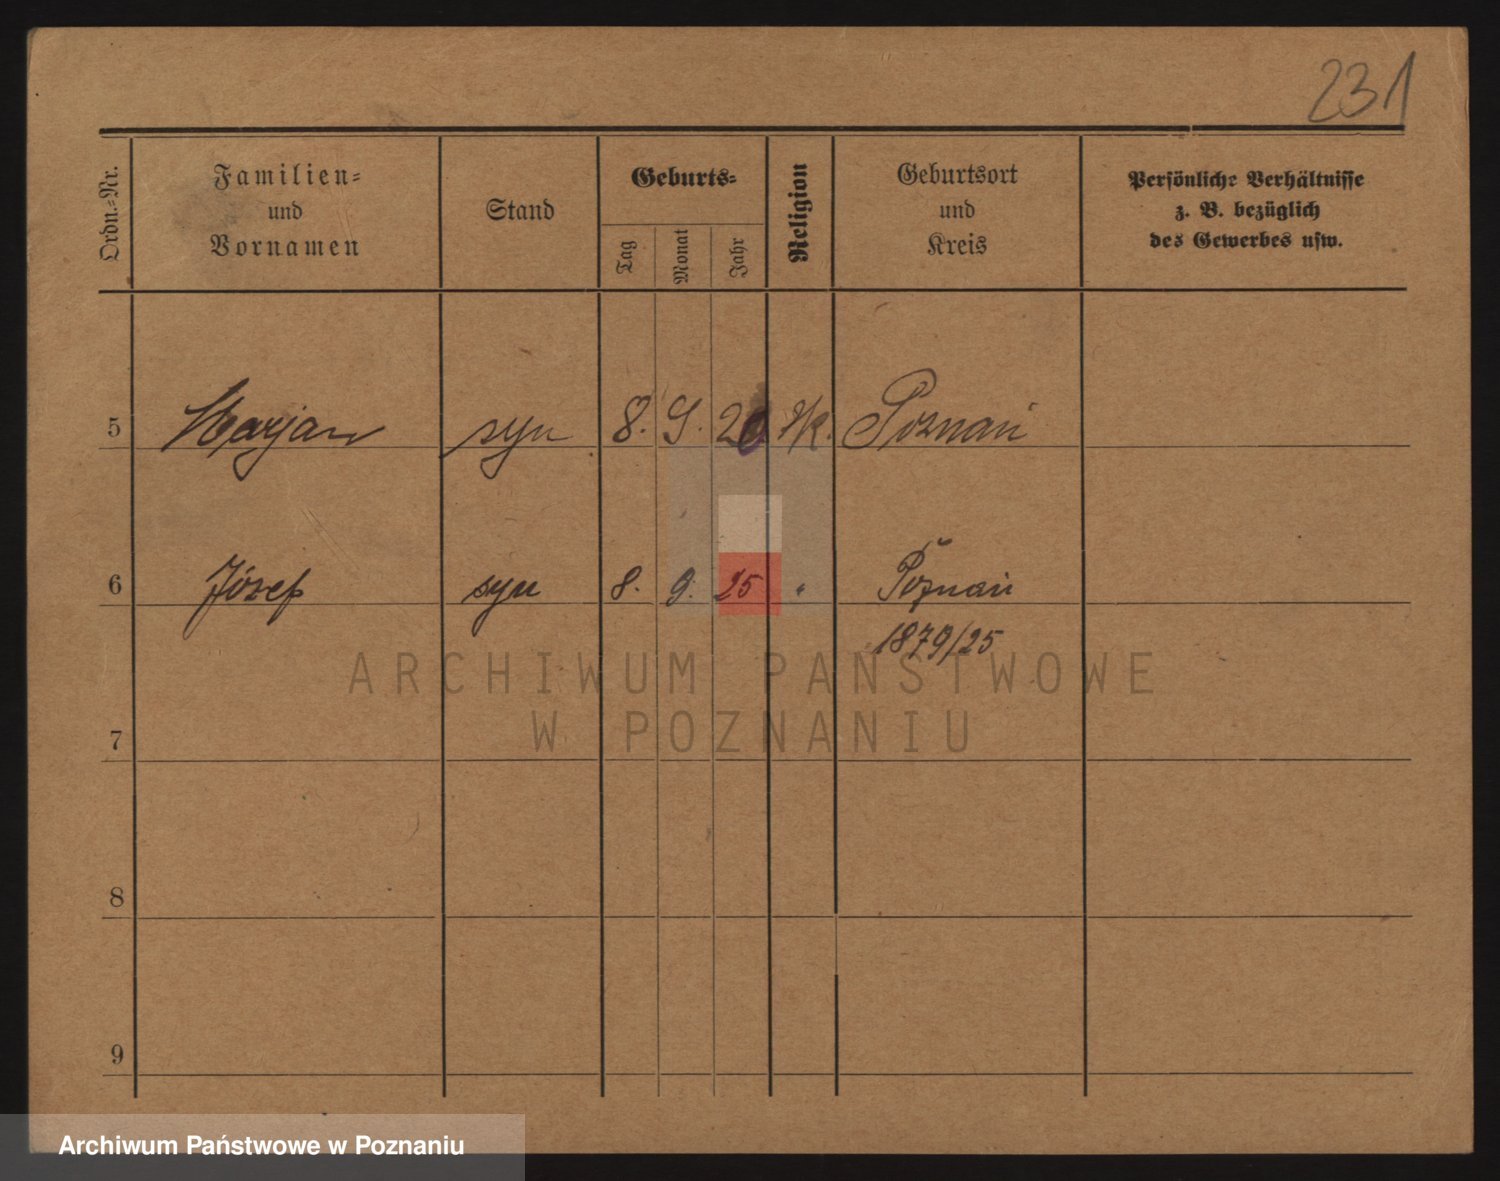 231
Ordn.-Nr.
Familien-
und
Vornamen
Stand
Geburts-
Tag
Monat
Jahr
Religion
Geburtsort
und
Kreis
Persönliche Verhältnisse
z. B. bezüglich
des Gewerbes usw.
5 Marjan syn 8. 9. 20 Poznań
6 Józef syn 8. 9. 25 " Poznań
1879/25
ARCHIWUM PAŃSTWOWE
W POZNANIU
7
8
9
Archiwum Państwowe w Poznaniu